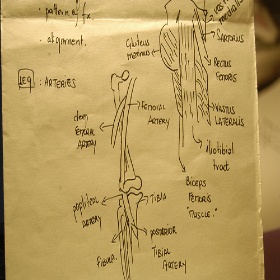 · pattern of fx.
· alignment.
vastus
medialis
SARTORIUS
Gluteus
maximus
RECTUS
FEMORIS
VASTUS
LATERALIS
iliotibial
tract
BICEPS
FEMORIS
"MUSCLE."
LEG : ARTERIES
FEMORAL
ARTERY
deep
FEMORAL
ARTERY
popliteal
ARTERY
TIBIA
POSTERIOR
TIBIAL
ARTERY
FIBULA.